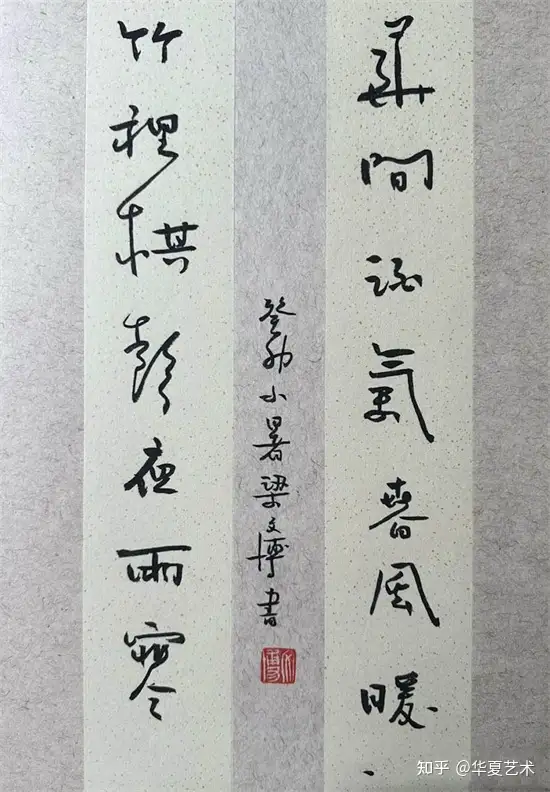 華間氣春風暖
竹裡棋聲夜雨寒
癸卯小暑梁文博書
知乎 @华夏艺术